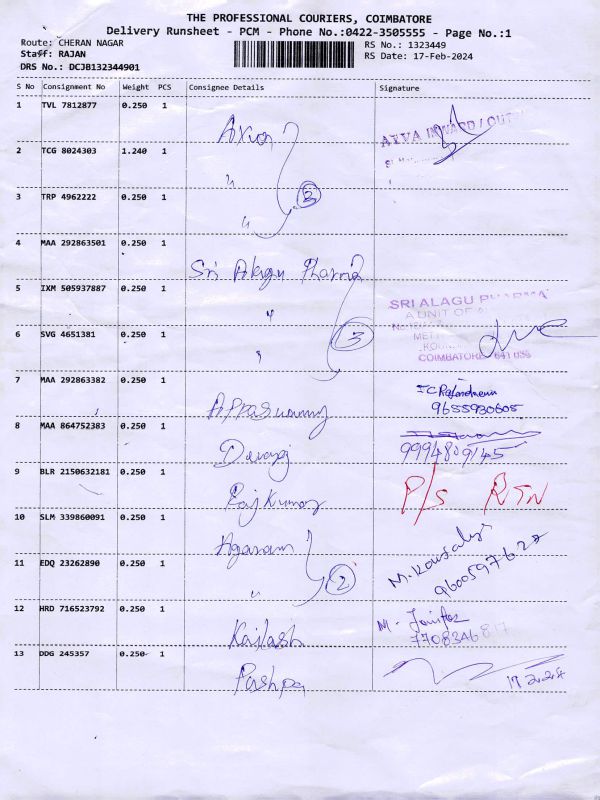 THE PROFESSIONAL COURIERS, COIMBATORE
Delivery Runsheet - PCM - Phone No.:0422-3505555 - Page No.:1
Route: CHERAN NAGAR
RS No.: 1323449
Staff: RAJAN
RS Date: 17-Feb-2024
DRS No.: DCJB132344901
S No Consignment No Weight PCS Consignee Details Signature
1 TVL 7812877 0.250 1
2 TCG 8024303 1.240 1 "
3 TRP 4962222 0.250 1 "
4 MAA 292863501 0.250 1 Sri Alagu Pharma
5 IXM 505937887 0.250 1 "
SRI ALAGU PHARMA
A UNIT OF
6 SVG 4651381 0.250 1 " 3
COIMBATORE
7 MAA 292863382 0.250 1
9655930605
8 MAA 864752383 0.250 1 Devaraj
9994809145
9 BLR 2150632181 0.250 1 Rajkumar P/s RTN
10 SLM 339860091 0.250 1 Agaram
11 EDQ 23262890 0.250 1 " 2 M. Kousalya
12 HRD 716523792 0.250 1 Kailash M.
13 DDG 245357 0.250 1 Pushpa 17.2.24